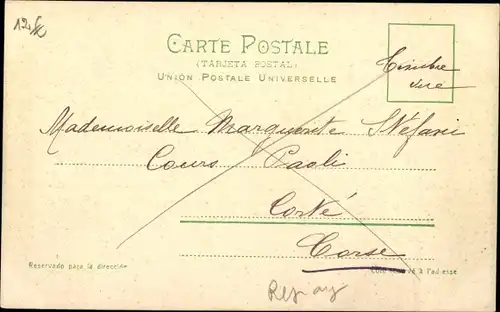 CARTE POSTALE
(TARJETA POSTAL)
UNIÓN POSTALE UNIVERSELLE
Timbre
Mademoiselle Marguerite Stéfani
Cours Paoli
Corté
Corse
Reservado para la dirección
Côté réservé à l'adresse